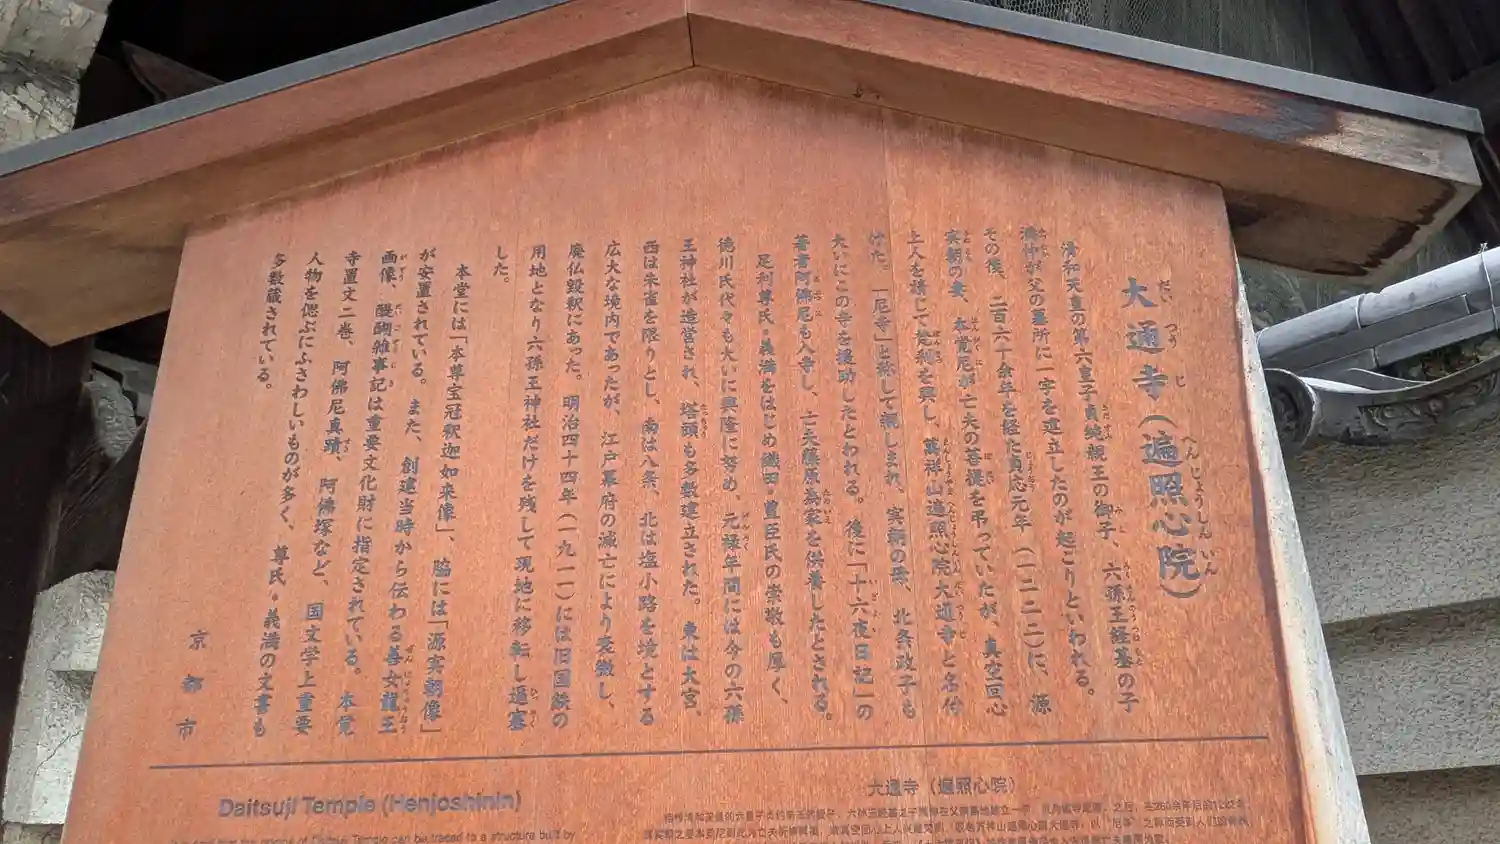 大通寺（遍照心院）
だい つう じ へんじょうしん いん
清和天皇の第六皇子貞純親王の御子、六孫王経基の子
満仲が父の墓所に一宇を建立したのが起こりといわれる。
その後、二百六十余年を経た貞応元年（一二二二）に、源
実朝の妻、本覚尼が亡夫の菩提を弔っていたが、真空回心
上人を請じて梵刹を興し、萬祥山遍照心院大通寺と名付
けた。「尼寺」と称して親しまれ、実朝の母、北条政子も
大いにこの寺を援助したとわれる。後に「十六夜日記」の
著者阿佛尼も入寺し、亡夫藤原為家を供養したとされる。
足利尊氏・義満をはじめ織田・豊臣氏の崇敬も厚く、
徳川氏代々も大いに興隆に努め、元禄年間には今の六孫
王神社が造営され、塔頭も多数建立された。東は大宮、
西は朱雀を限りとし、南は八条、北は塩小路を境とする
広大な境内であったが、江戸幕府の滅亡により衰微し、
廃仏毀釈にあった。明治四十四年（一九一一）には旧国鉄の
用地となり六孫王神社だけを残して現地に移転し逼塞
した。
本堂には「本尊宝冠釈迦如来像」、脇には「源実朝像」
が安置されている。また、創建当時から伝わる善女龍王
画像、醍醐雑事記は重要文化財に指定されている。本覚
寺置文二巻、阿佛尼真蹟、阿佛塚など、国文学上重要
人物を偲ぶにふさわしいものが多く、尊氏・義満の文書も
多数蔵されている。
京都市
Daitsuji Temple (Henjoshinin)
大通寺（遍照心院）
Daitsuji Temple can be traced to a structure built by